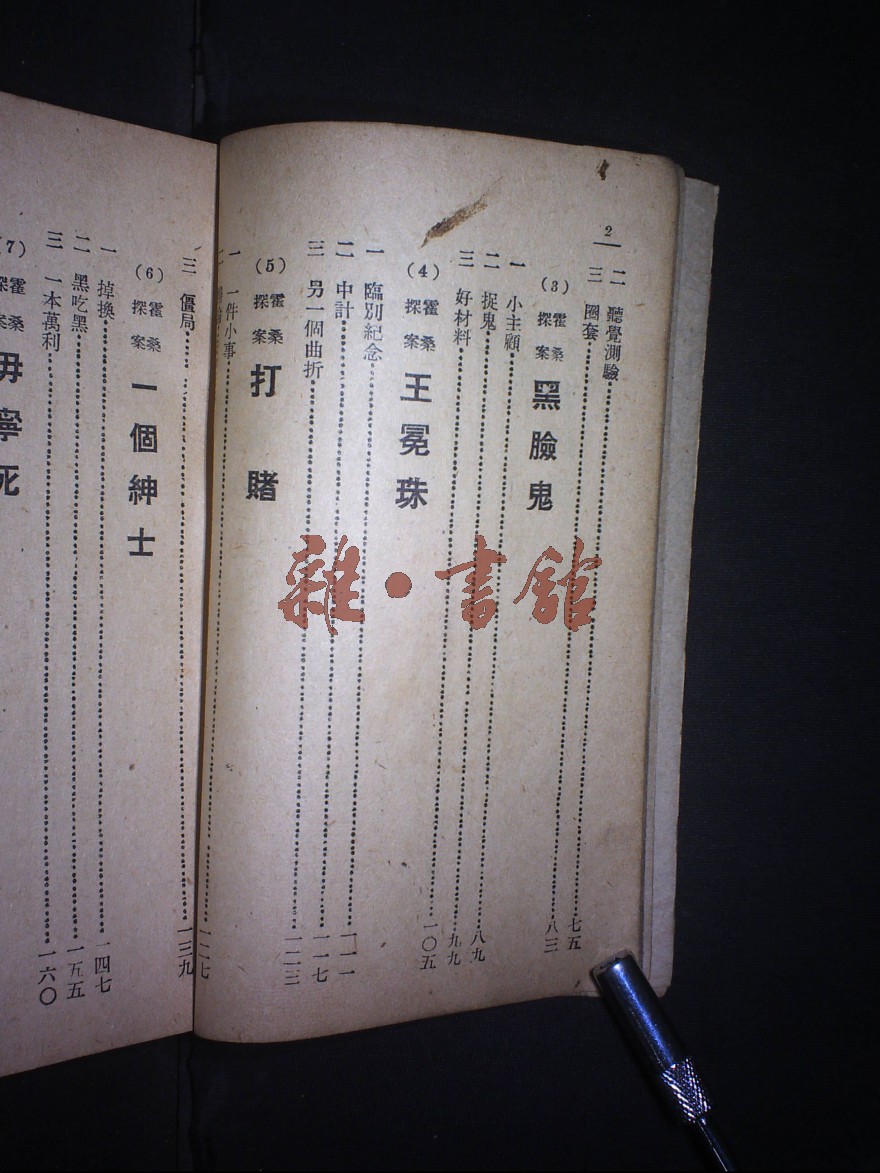 2
二 聽覺測驗 七五
三 圈套 八三
(3) 霍桑探案 黑臉鬼
一 小主顧 八九
二 捉鬼 九九
三 好材料 一〇五
(4) 霍桑探案 王冕珠
一 臨別紀念 一一一
二 中計 一一七
三 另一個曲折 一二三
(5) 霍桑探案 打賭
一 一件小事 一二七
三 僵局 一三九
(6) 霍桑探案 一個紳士
一 掉換 一四七
二 黑吃黑 一五五
三 一本萬利 一六〇
(7) 霍桑探案 毋寧死
雜·書館